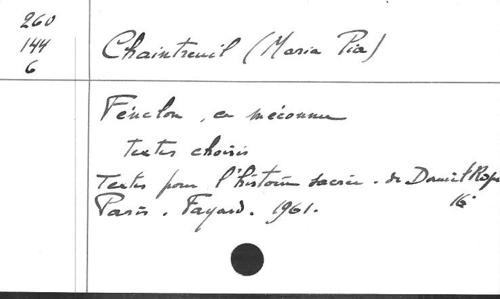 260
144
6
Chaintreuil (Maria Pia)
Fénelon, ce méconnu
textes choisis
Textes pour l'histoire sacrée. de Daniel Rops
Paris. Fayard. 1961. 16°